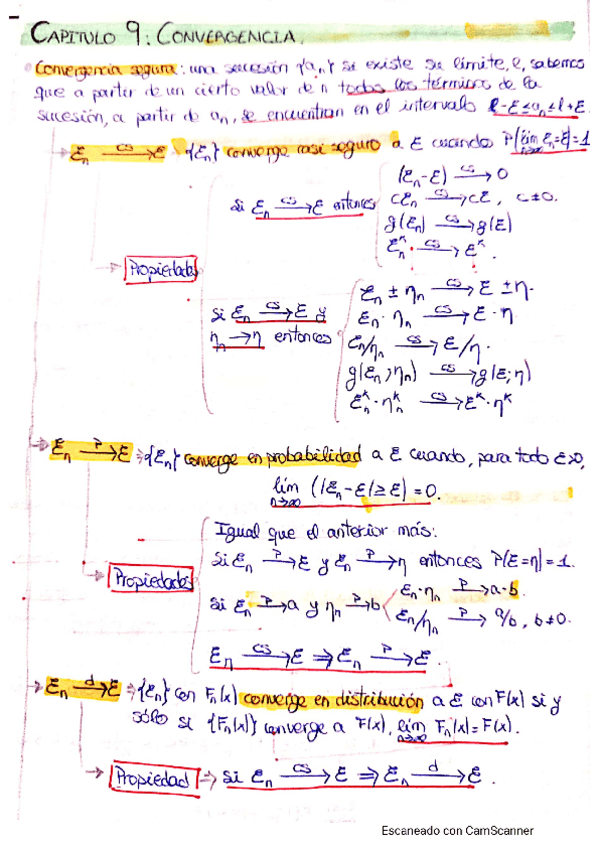 CAPITULO 9: CONVERGENCIA.
Convergencia segura: una sucesión {aₙ} si existe su límite, l, sabemos
que a partir de un cierto valor de n todos los términos de la
sucesión, a partir de aₙ, se encuentran en el intervalo l-ε≤aₙ≤l+ε.
ξₙ –cs→ ξ → {ξₙ} converge casi seguro a ξ cuando P[lim n→∞ ξₙ=ξ]=1
Propiedades
Si ξₙ –cs→ ξ entonces
(ξₙ-ξ) –cs→ 0
cξₙ –cs→ cξ, c≠0.
g(ξₙ) –cs→ g(ξ)
ξₙᴷ –cs→ ξᴷ.
Si ξₙ –cs→ ξ y
ηₙ → η entonces
ξₙ ± ηₙ –cs→ ξ ± η.
ξₙ · ηₙ –cs→ ξ · η
ξₙ/ηₙ –cs→ ξ/η.
g(ξₙ; ηₙ) –cs→ g(ξ; η)
ξₙᴷ · ηₙᴷ –cs→ ξᴷ · ηᴷ
ξₙ –P→ ξ ⇒ {ξₙ} converge en probabilidad a ξ cuando, para todo ε>0,
lim n→∞ (|ξₙ-ξ|≥ε)=0.
Propiedades
Igual que el anterior más:
Si ξₙ –P→ ξ y ξₙ –P→ η entonces P[ξ=η]=1.
Si ξₙ –P→ a y ηₙ –P→ b
ξₙ·ηₙ –P→ a·b.
ξₙ/ηₙ –P→ a/b, b≠0.
ξₙ –cs→ ξ ⇒ ξₙ –P→ ξ.
ξₙ –d→ ξ ⇒ {ξₙ} con Fₙ(x) converge en distribución a ξ con F(x) si y
sólo si {Fₙ(x)} converge a F(x), lim n→∞ Fₙ(x)=F(x).
Propiedad ⇒ Si ξₙ –cs→ ξ ⇒ ξₙ –d→ ξ.
Escaneado con CamScanner